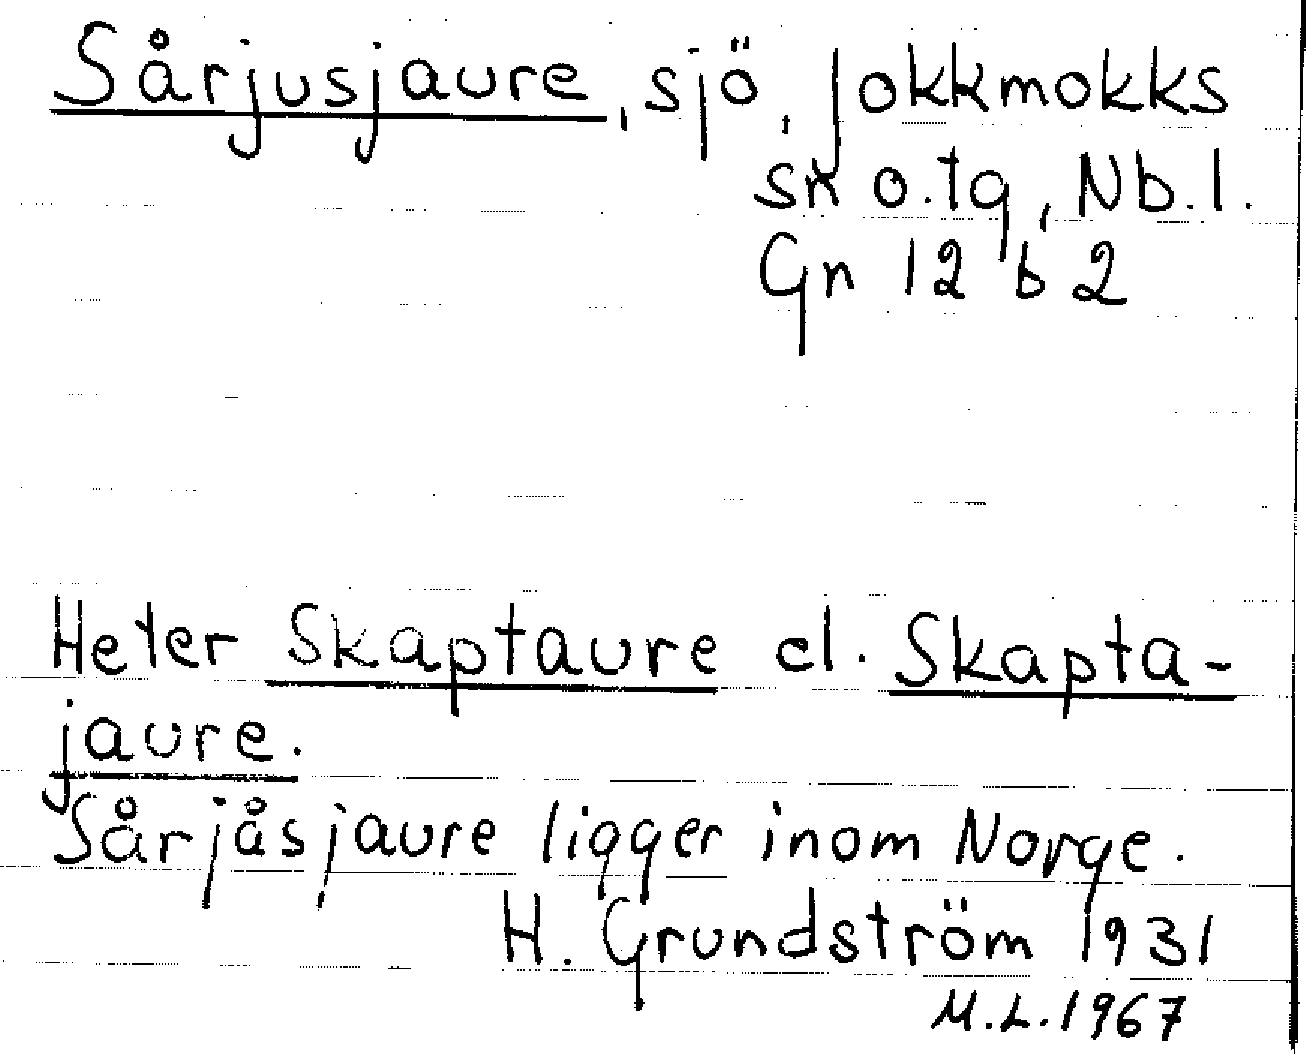 Sårjusjaure, sjö, Jokkmokks
sn o. tg, Nb. l.
Gn 12 b 2
Heter Skaptaure el. Skapta-
jaure.
Sårjåsjaure ligger inom Norge.
H. Grundström 1931
M.L. 1967